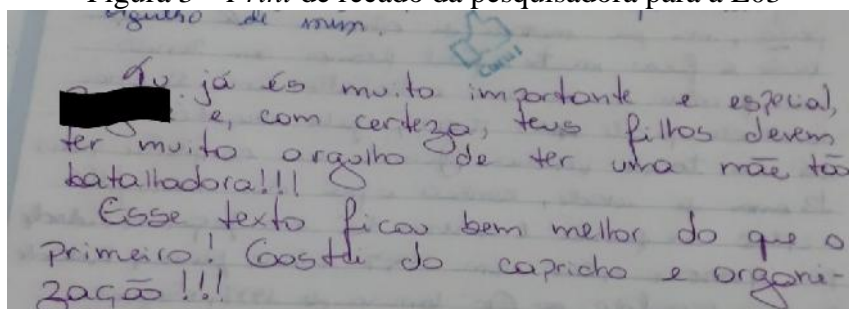 Figura 3 – Print de recado da pesquisadora para a E05
orgulho de mim.
Legal
Tu já és muito importante e especial,
e, com certeza, teus filhos devem
ter muito orgulho de ter uma mãe tão
batalhadora!!!
Esse texto ficou bem melhor do que o
primeiro! Gostei do capricho e organi-
zação!!!